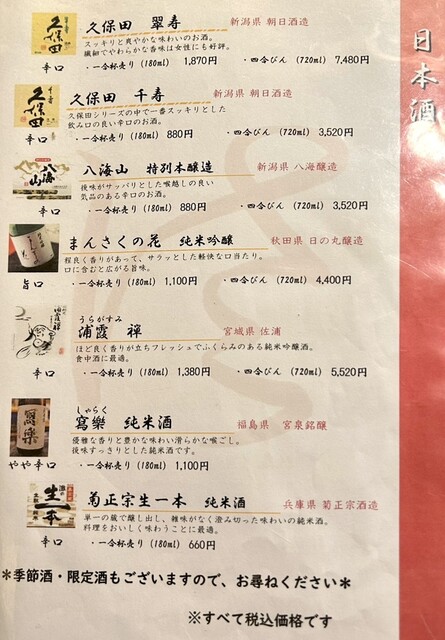 日本酒
久保田 翠寿 新潟県 朝日酒造
スッキリと爽やかな味わいのお酒。
繊細でやわらかな香味は女性にも好評。
辛口 ・一合杯売り(180ml) 1,870円 ・四合びん (720ml) 7,480円
久保田 千寿 新潟県 朝日酒造
久保田シリーズの中で一番スッキリとした
飲み口の良い辛口のお酒。
辛口 ・一合杯売り(180ml) 880円 ・四合びん (720ml) 3,520円
八海山 特別本醸造 新潟県 八海醸造
後味がサッパリとした喉越しの良い
気品のある辛口のお酒。
辛口 ・一合杯売り(180ml) 880円 ・四合びん (720ml) 3,520円
まんさくの花 純米吟醸 秋田県 日の丸醸造
程良く香りがあって、サラッとした軽快な口当たり。
口に含むと広がる旨味。
旨口 ・一合杯売り(180ml) 1,100円 ・四合びん (720ml) 4,400円
うらがすみ
浦霞 禅 宮城県 佐浦
ほど良く香りが立ちフレッシュでふくらみのある純米吟醸酒。
食中酒に最適。
辛口 ・一合杯売り (180ml) 1,380円 ・四合びん (720ml) 5,520円
しゃらく
寫樂 純米酒 福島県 宮泉銘醸
優雅な香りと豊かな味わい滑らかな喉ごし。
後味すっきりとした純米酒です。
やや辛口 ・一合杯売り(180ml) 1,100円
菊正宗生一本 純米酒 兵庫県 菊正宗酒造
単一の蔵で醸し出し、雑味がなく澄み切った味わいの純米酒。
料理をおいしく味わうことに最適。
辛口 ・一合杯売り(180ml) 660円
＊季節酒・限定酒もございますので、お尋ねください＊
※すべて税込価格です